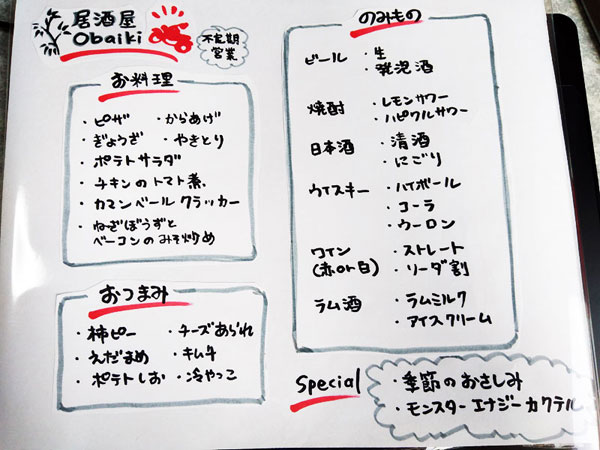 居酒屋
Obaiki
不定期
営業
お料理
・ピザ ・からあげ
・ぎょうざ ・やきとり
・ポテトサラダ
・チキンのトマト煮
・カマンベールクラッカー
・ねぎぼうずと
ベーコンのみそ炒め
おつまみ
・柿ピー ・チーズあられ
・えだまめ ・キムチ
・ポテトしお ・冷やっこ
のみもの
ビール ・生
・発泡酒
焼酎 ・レモンサワー
・ハピクルサワー
日本酒 ・清酒
・にごり
ウイスキー ・ハイボール
・コーラ
・ウーロン
ワイン ・ストレート
(赤or白) ・ソーダ割
ラム酒 ・ラムミルク
・アイスクリーム
Special ・季節のおさしみ
・モンスターエナジーカクテル